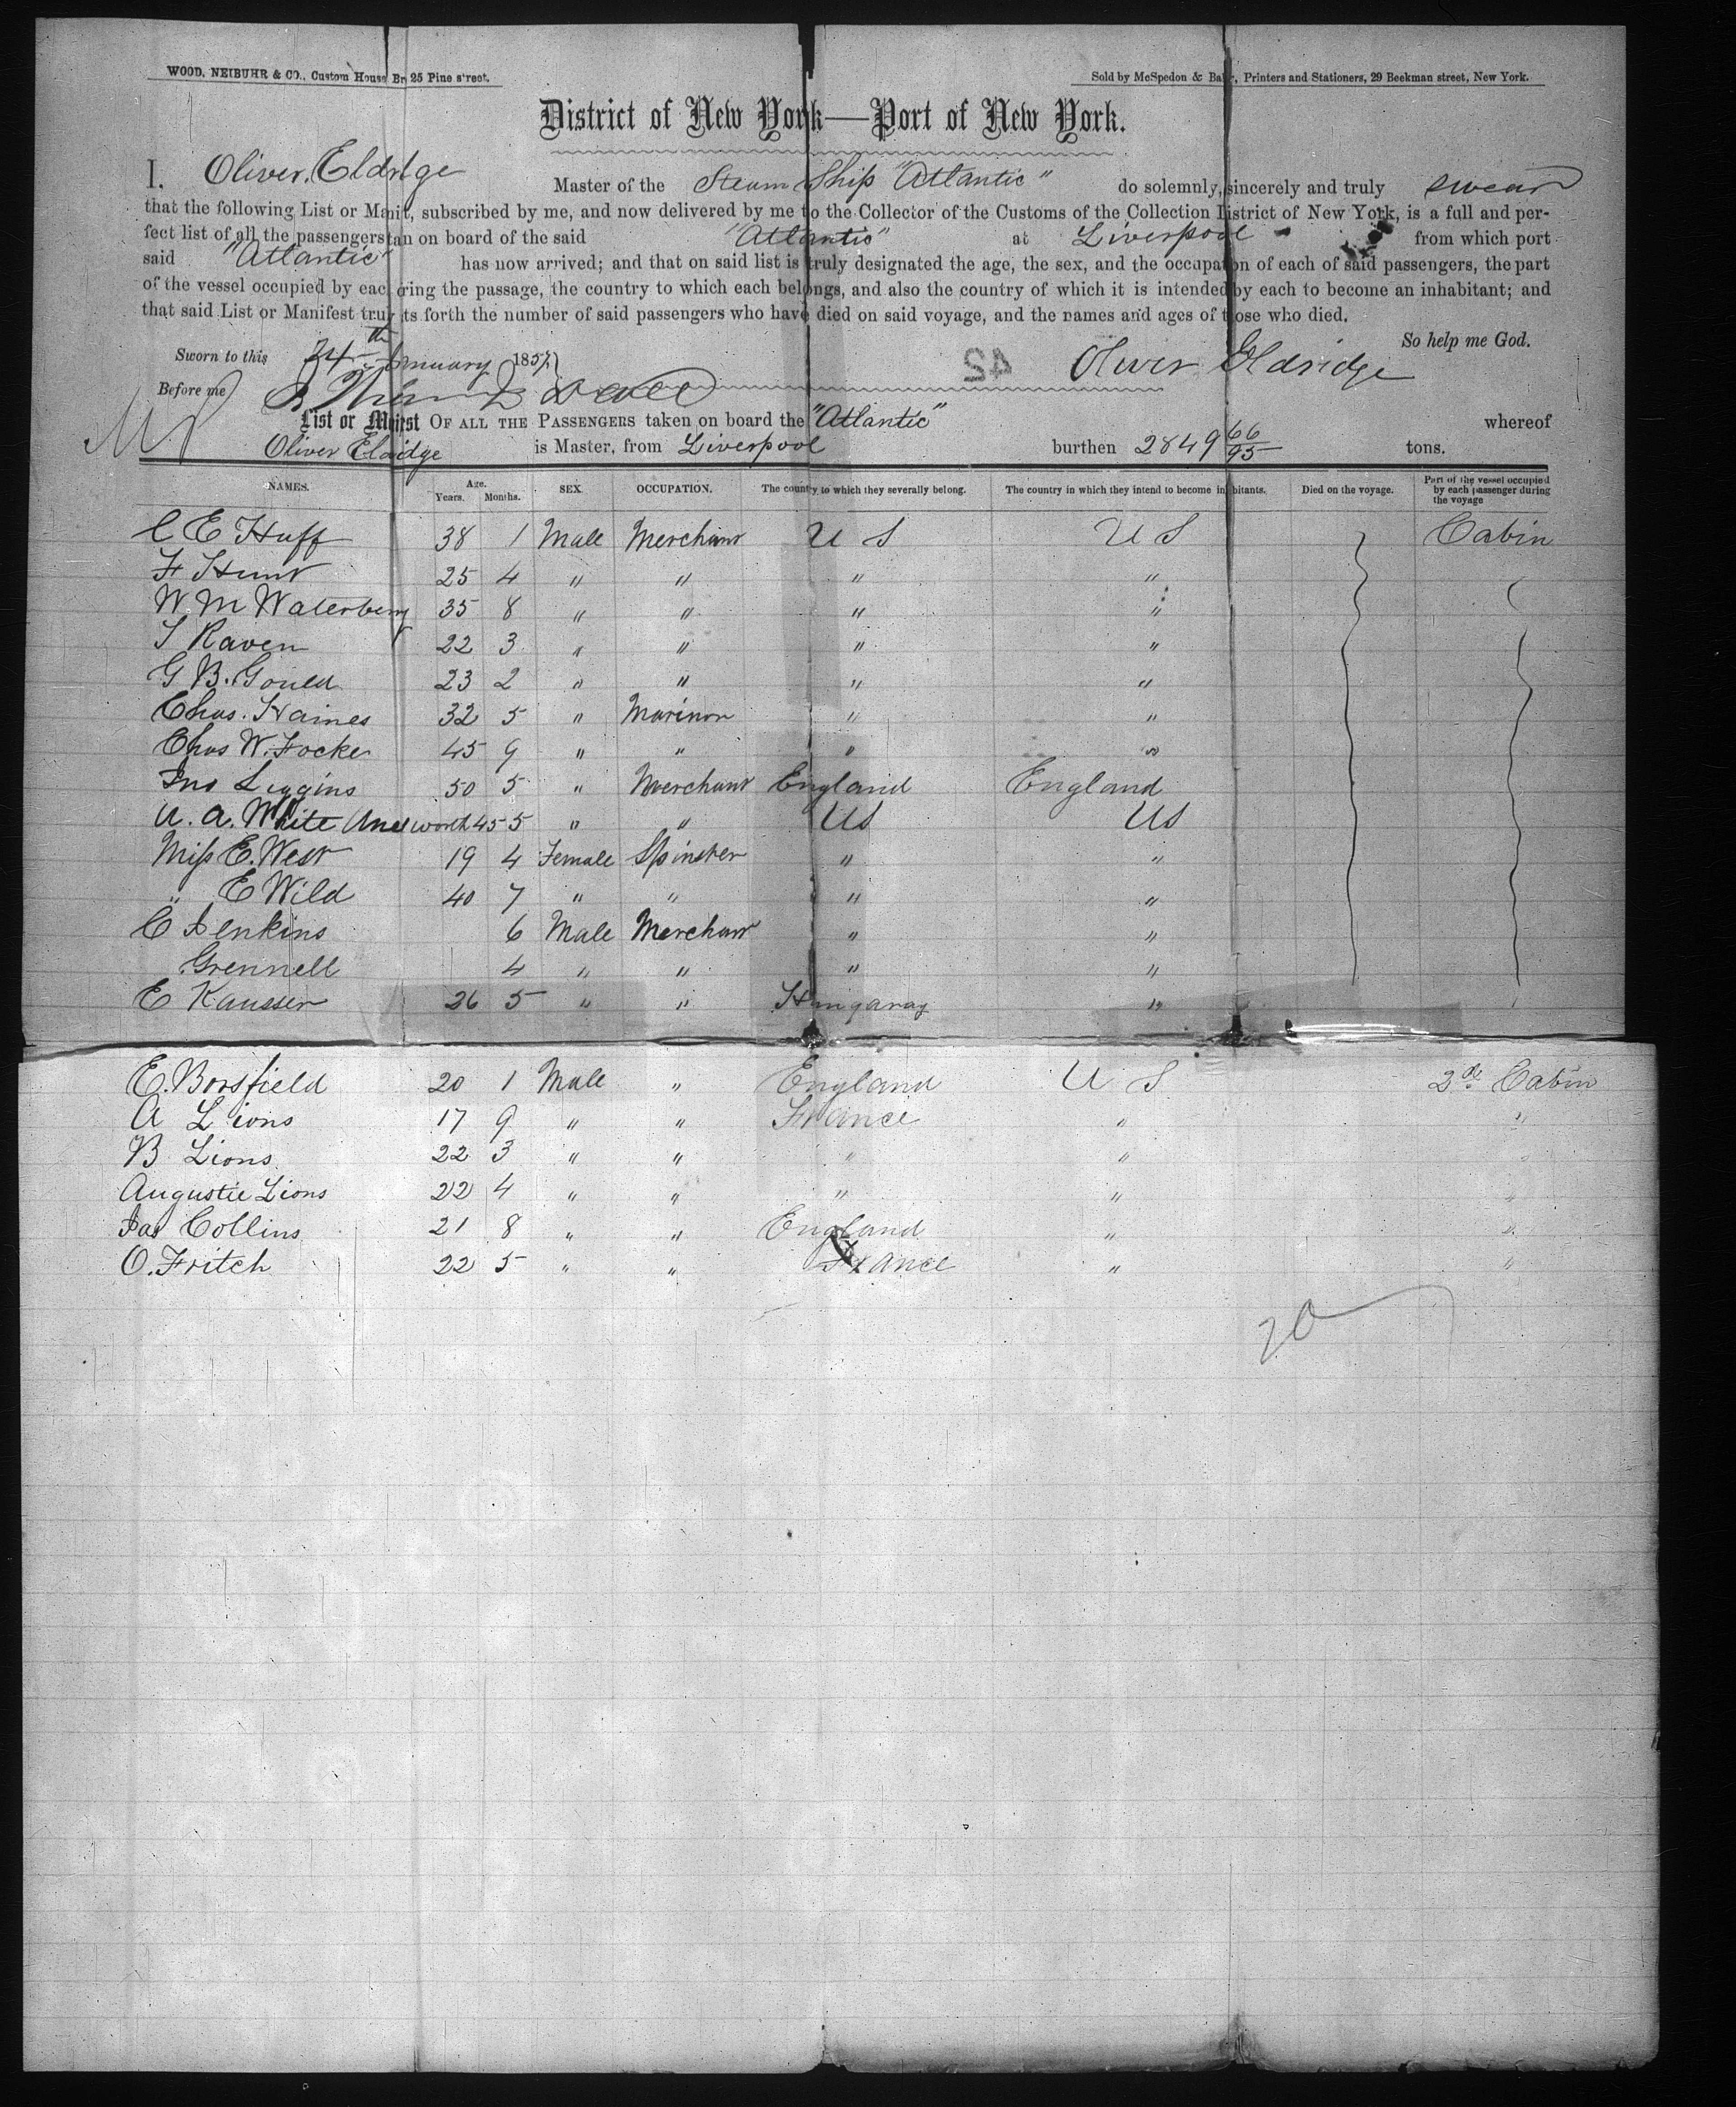 WOOD, NEIBUHR & CO., Custom House Br 25 Pine street. Sold by McSpedon & Bak r, Printers and Stationers, 29 Beekman street, New York.
District of New York—Port of New York.
I. Oliver Eldridge Master of the Steam Ship "Atlantic" do solemnly, sincerely and truly swear
that the following List or Manif t, subscribed by me, and now delivered by me to the Collector of the Customs of the Collection District of New York, is a full and per-
fect list of all the passengers ta n on board of the said "Atlantic" at Liverpool from which port
said "Atlantic" has now arrived; and that on said list is truly designated the age, the sex, and the occupation of each of said passengers, the part
of the vessel occupied by eac ring the passage, the country to which each belongs, and also the country of which it is intended by each to become an inhabitant; and
that said List or Manifest truly ts forth the number of said passengers who have died on said voyage, and the names and ages of those who died.
So help me God.
Sworn to this 24th January 1857 Oliver Eldridge
42
Before me
List or M ifest OF ALL THE PASSENGERS taken on board the "Atlantic" whereof
Oliver Eldridge is Master, from Liverpool burthen 2849 66/95 tons.
NAMES. Age. Years. Months. SEX. OCCUPATION. The country to which they severally belong. The country in which they intend to become inhabitants. Died on the voyage. Part of the vessel occupied by each passenger during the voyage
C E Huff 38 1 Male Merchant U S U S Cabin
F Hunt 25 4 " " " "
W M Waterbery 35 8 " " " "
S Raven 22 3 " " " "
G B. Gould 23 2 " " " "
Chas. Haines 32 5 " Marinor " "
Chas W. Focke 45 9 " " " "
Jno Liggins 50 5 " Merchant England England
A. A. White 45 5 " " US US
Miss E. West 19 4 Female Spinster " "
" E Wild 40 7 " " " "
C Jenkins 6 Male Merchant " "
Grennell 4 " " " "
E Kausser 26 5 " " Hungaray "
E. Borsfield 20 1 Male " England U S 2d Cabin
A Lions 17 9 " " France " "
B Lions 22 3 " " " " "
Augustie Lions 22 4 " " " " "
Jas Collins 21 8 " " England " "
O. Fritch 22 5 " " France " "
20